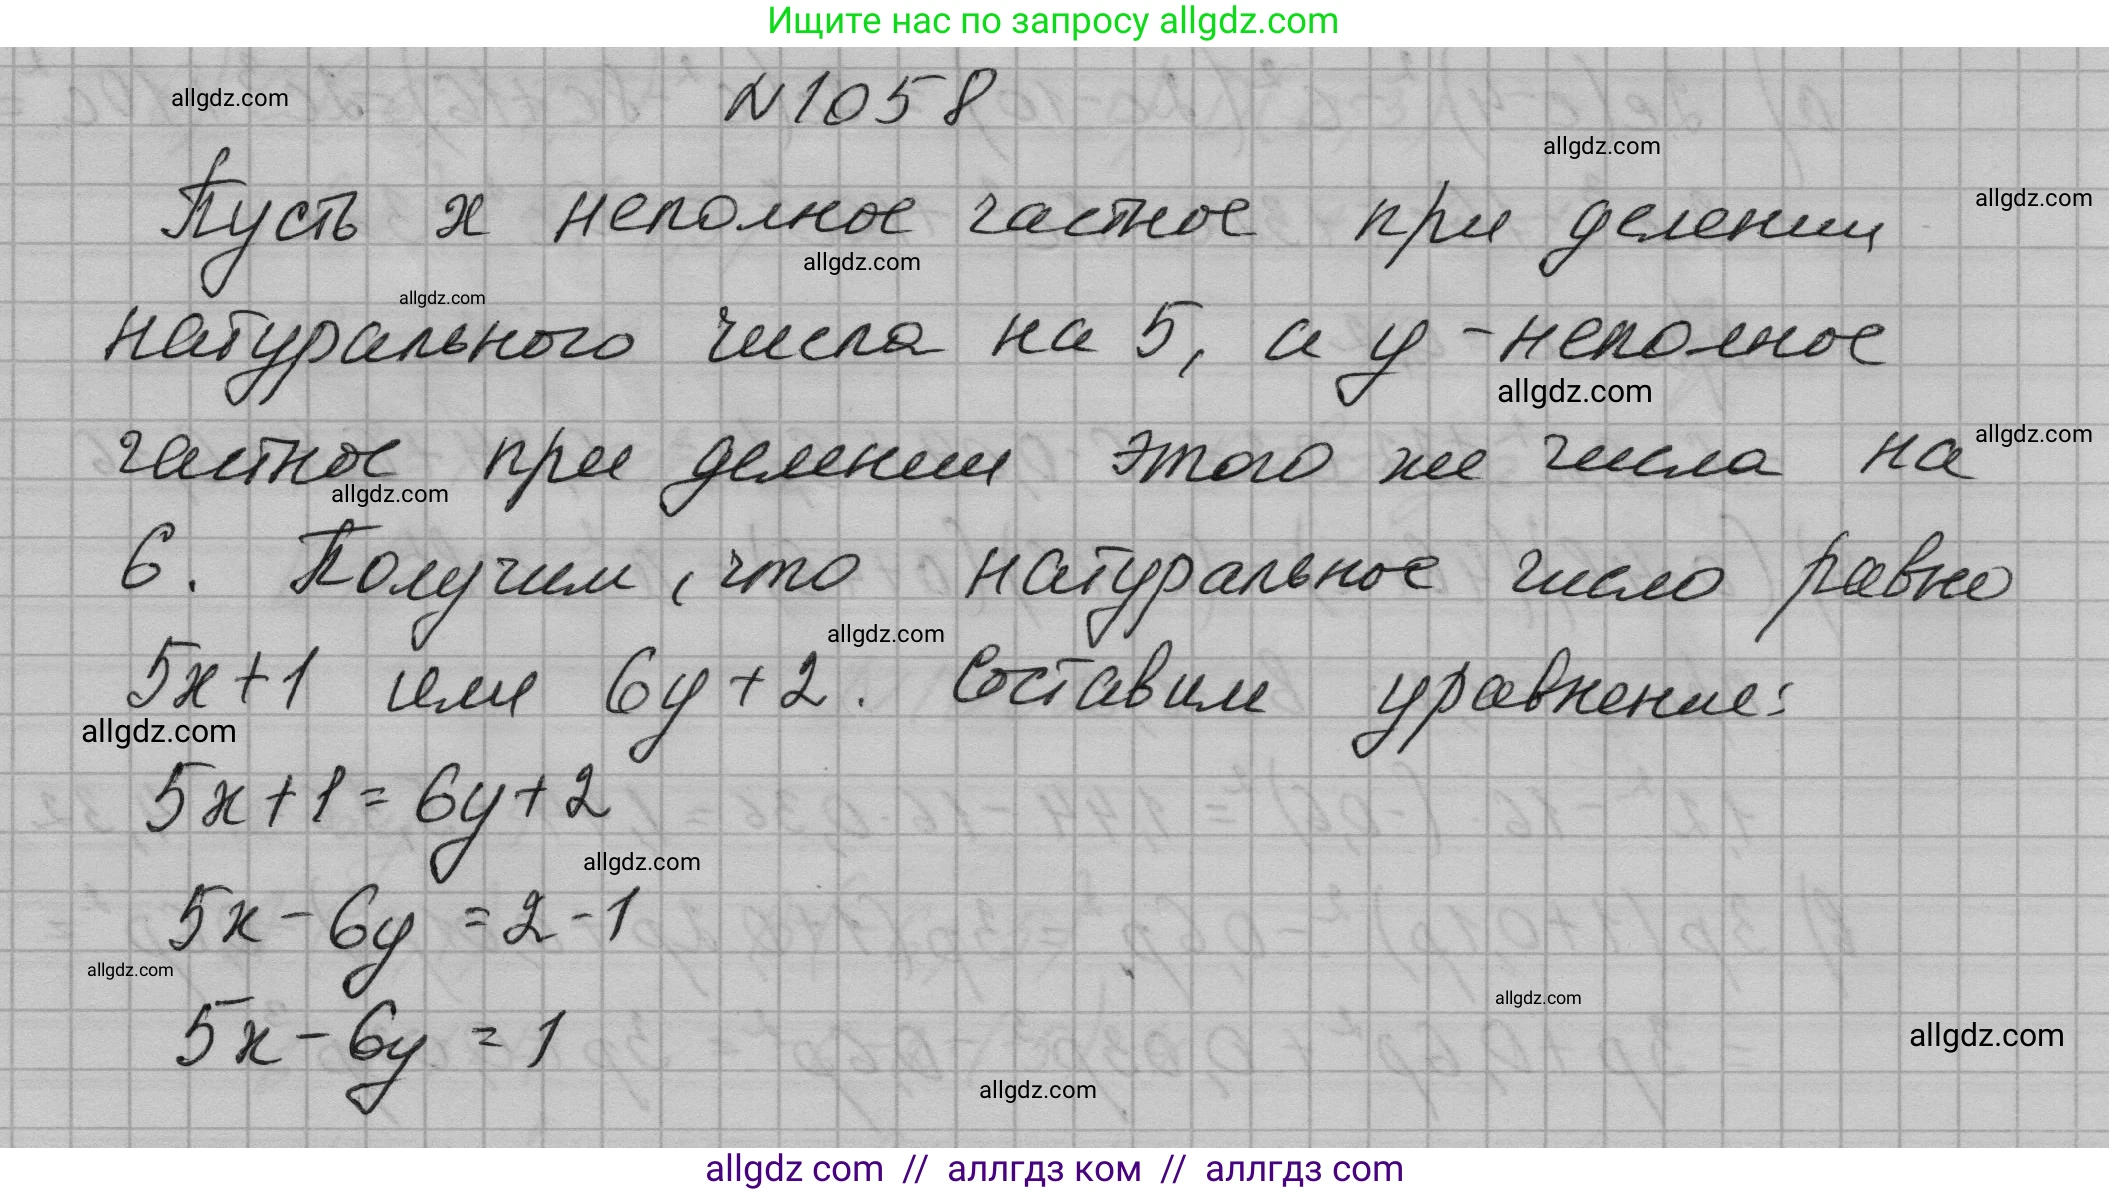 Ищите нас по запросу allgdz.com
allgdz.com
N 1058
allgdz.com
Пусть x неполное частное при делении
allgdz.com
allgdz.com
allgdz.com
натурального числа на 5, а y - неполное
allgdz.com
частное при делении этого же числа на
allgdz.com
allgdz.com
6. Получим, что натуральное число равно
allgdz.com
5x+1 или 6y+2. Составим уравнение:
allgdz.com
5x+1=6y+2
allgdz.com
5x-6y=2-1
allgdz.com
allgdz.com
5x-6y=1
allgdz.com
allgdz.com
allgdz com // аллгдз ком // аллгдз com